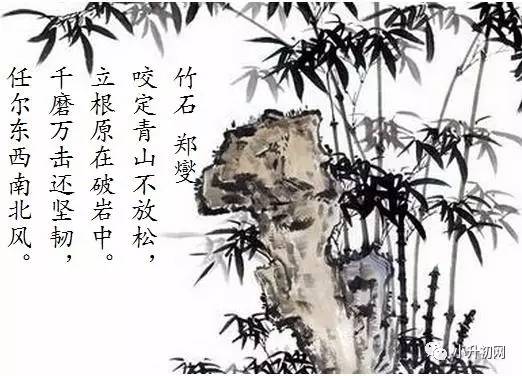 竹石 郑燮
咬定青山不放松，
立根原在破岩中。
千磨万击还坚韧，
任尔东西南北风。
小升初网